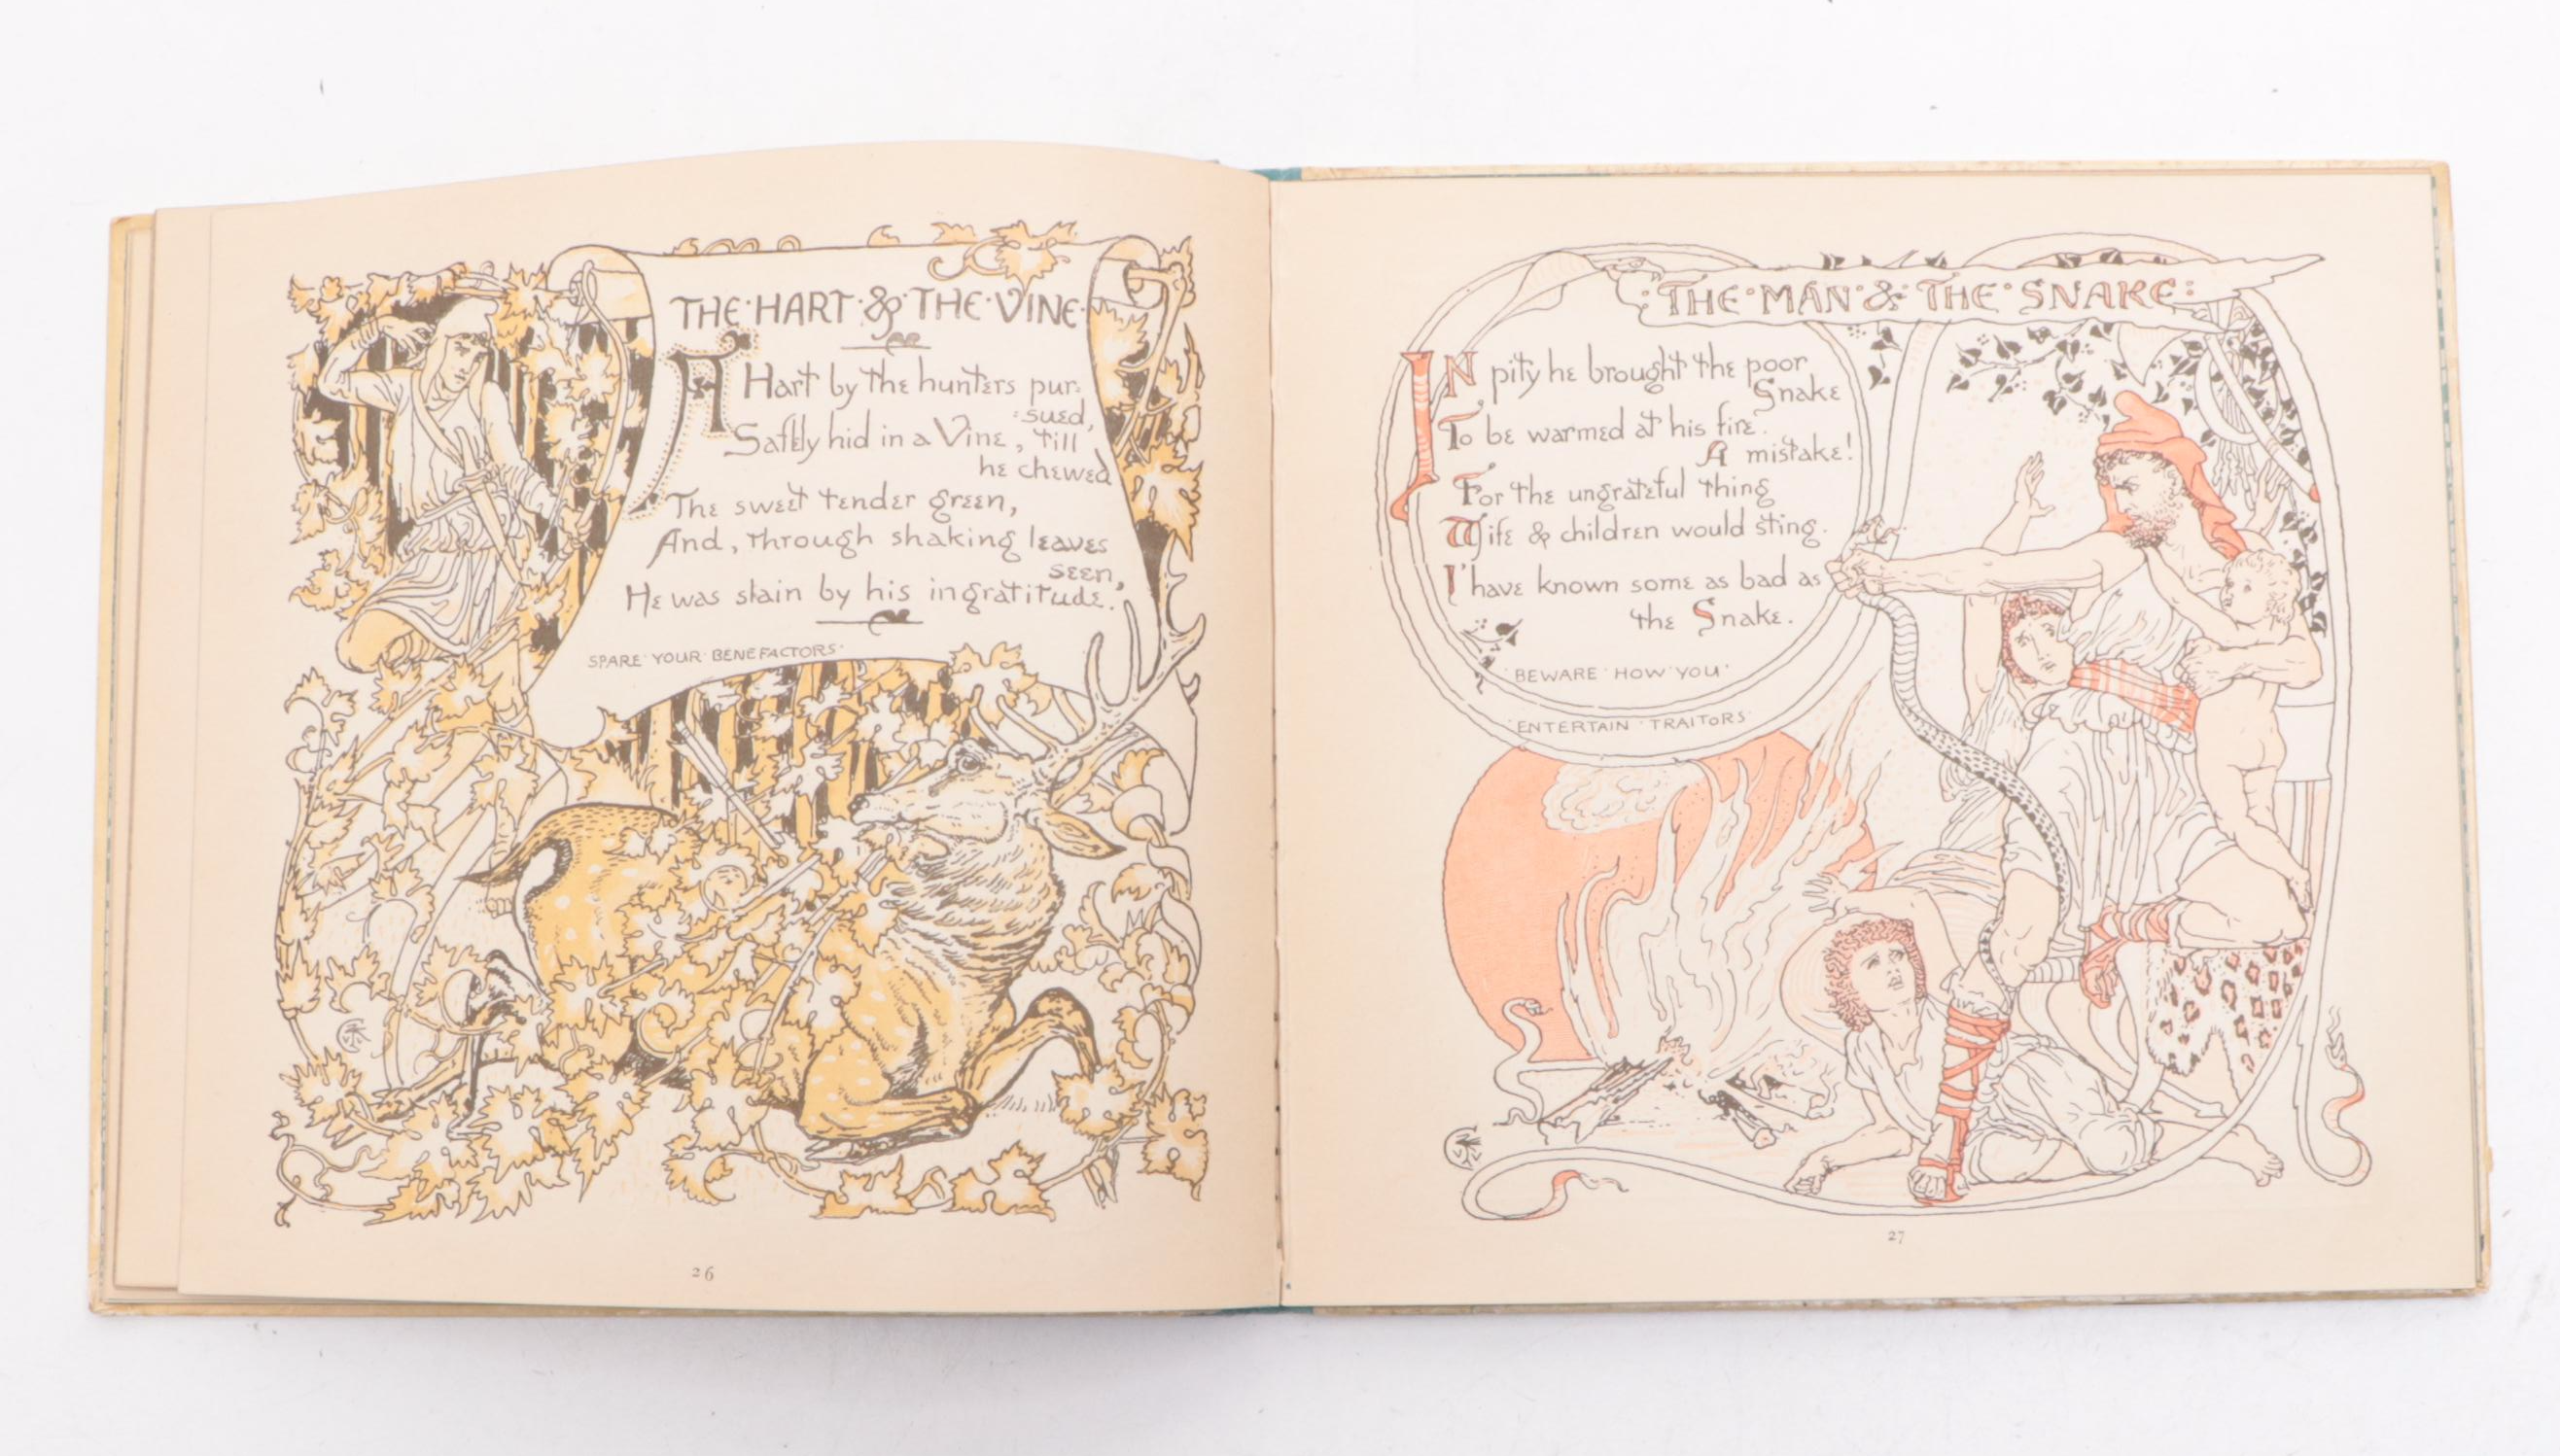 THE·HART·&·THE·VINE·
A Hart by the hunters pur-
-sued,
Safely hid in a Vine, till
he chewed
The sweet tender green,
And, through shaking leaves
seen,
He was slain by his ingratitude.
SPARE·YOUR·BENEFACTORS·
26
:THE·MAN·&·THE·SNAKE:
IN pity he brought the poor
Snake
To be warmed at his fire.
A mistake!
For the ungrateful thing
Wife & children would sting.
I have known some as bad as
the Snake.
·BEWARE·HOW·YOU·
·ENTERTAIN·TRAITORS·
27